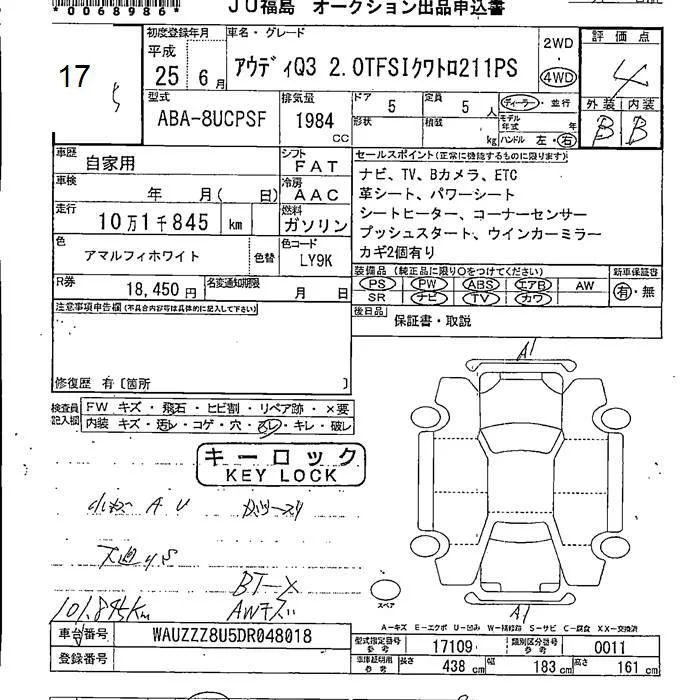 *0068986*
JU福島 オークション出品申込書
17
初度登録年月
平成
25 6月
車名・グレード
アウディQ3 2.0TFSIクワトロ211PS
2WD
4WD
評価点
4
外装 内装
B B
型式
ABA-8UCPSF
排気量
1984
CC
ドア 5
定員 5 人
形状
積載 kg
ディーラー・並行
モデル年式 年
ハンドル 左・右
車歴
自家用
シフト
FAT
車検
年 月( 日)
冷房
AAC
走行
10万1千845 km
燃料
ガソリン
色
アマルフィホワイト
色替
色コード
LY9K
R券
18,450円
名変通知期限
月 日
セールスポイント(正常に機能するものに限ります)
ナビ、TV、Bカメラ、ETC
革シート、パワーシート
シートヒーター、コーナーセンサー
プッシュスタート、ウインカーミラー
カギ2個有り
装備品 (純正品に限り○をつけてください)
PS PW ABS エアB AW
SR ナビ TV カワ
新車保証書
有・無
後日品
保証書・取説
注意事項申告欄(不具合内容等は具体的に記入して下さい)
修復歴 有〔箇所 〕
検査員記入欄
FW キズ・飛石・ヒビ割・リペア跡・×要
内装 キズ・汚レ・コゲ・穴・スレ・キレ・破レ
キーロック
KEY LOCK
A1
小キズ A U
BT-X
101.845km
AWキズ
スペア
A1
A-キズ E-エクボ U-凹み W-補修跡 S-サビ C-腐食 XX-交換済
車台番号
WAUZZZ8U5DR048018
登録番号
型式指定番号
参考
17109
類別区分番号
参考
0011
車庫証明用
参考
長さ 438 cm 幅 183 cm 高さ 161 cm